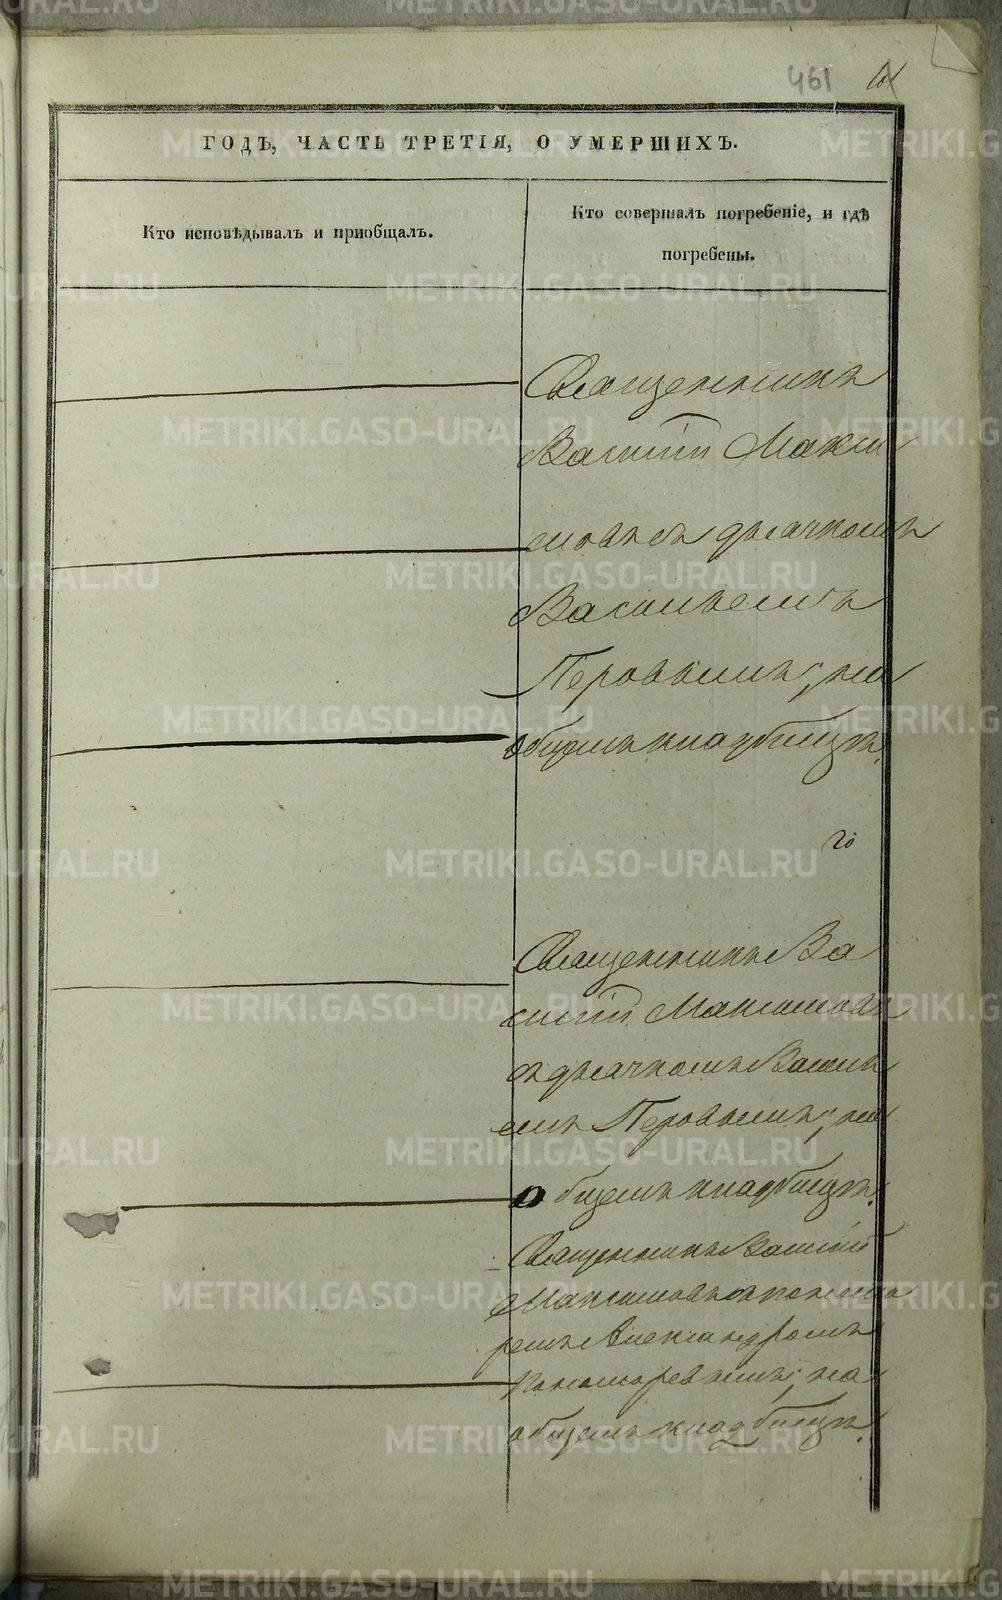 461
ГОДЪ, ЧАСТЬ ТРЕТІЯ, О УМЕРШИХЪ.
Кто исповѣдывалъ и пріобщалъ.
Кто совершалъ погребеніе, и гдѣ
погребены.
Священникъ
Василій Макси
мовъ съ дьячкомъ
Васильемъ
Перовымъ; на
общемъ кладбищѣ.
Священникъ Ва
силій Максимовъ
съ дьячкомъ Василь
емъ Перовымъ; на
общемъ кладбищѣ.
Священникъ Василій
Максимовъ съ пономa
ремъ Александромъ
Пономаревымъ; на
общемъ кладбищѣ.
METRIKI.GASO-URAL.RU